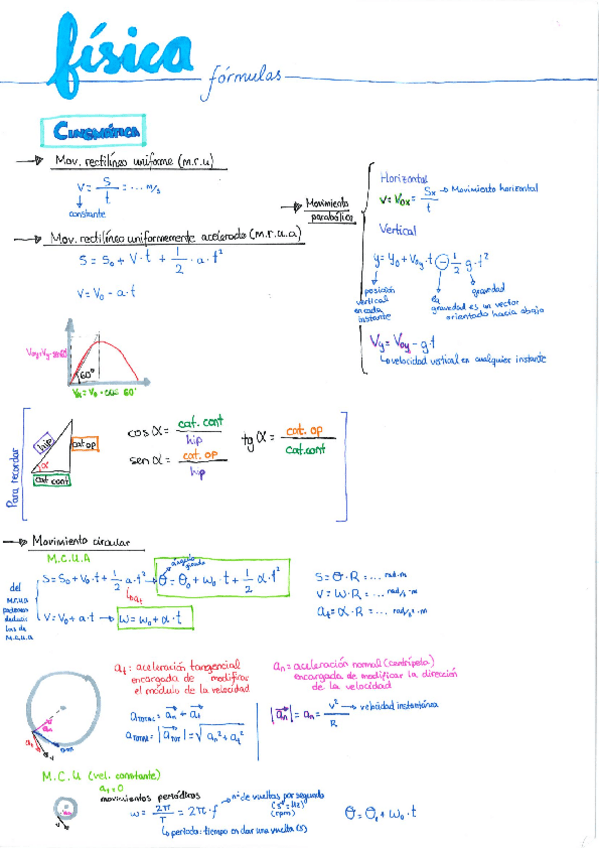 física
fórmulas
CINEMÁTICA
→ Mov. rectilíneo uniforme (m.r.u)
V = S/t = ... m/s
constante
→ Mov. rectilíneo uniformemente acelerado (m.r.u.a)
S = S₀ + V·t + 1/2 · a · t²
V = V₀ - a·t
→ Movimiento parabólico
Horizontal
V = V₀ₓ = Sx/t → Movimiento horizontal
Vertical
y = y₀ + V₀y·t - 1/2 g·t²
posición vertical en cada instante
gravedad
la gravedad es un vector orientado hacia abajo
Vy = V₀y - g·t
↳ velocidad vertical en cualquier instante
60°
Para recordar
hip
cat op
α
cat cont
cos α = cat. cont / hip
sen α = cat. op / hip
tg α = cat. op / cat. cont
→ Movimiento circular
M.C.U.A
del M.r.u.a podemos deducir las de M.c.u.a
S = S₀ + V₀·t + 1/2 a·t² → θ = θ₀ + ω₀·t + 1/2 α·t²
↳ at
V = V₀ + a·t → ω = ω₀ + α·t
S = θ·R = ... rad·m
V = ω·R = ... rad/s·m
at = α·R = ... rad/s²·m
at: aceleración tangencial
encargada de modificar
el módulo de la velocidad
an = aceleración normal (centrípeta)
encargada de modificar la dirección
de la velocidad
a TOTAL = an + at
a TOTAL = |a TOT| = √an² + at²
|an| = an = V²/R → velocidad instantánea
an
at
M.C.U (vel. constante)
at = 0
movimientos periódicos
ω = 2π/T = 2π·f → nº de vueltas por segundo
(s⁻¹ = Hz)
(rpm)
↳ periodo: tiempo en dar una vuelta (s)
θ = θ₀ + ω₀·t